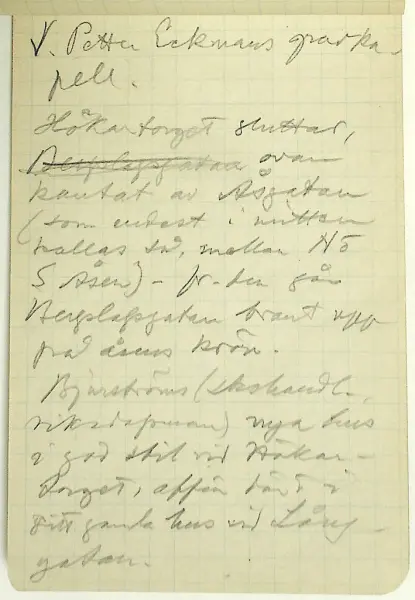 V. Petter Eckmans gravka-
pell.
Hökartorget sluttar,
Bergslagsgatan ovan
kantat av Åsgatan
(som endast i mitten
kallas så, mellan N o
S Åsen) - fr. den går
Bergslagsgatan brant upp
på åsens krön.
Björströms (ekshandl.
riksdagsman) nya hus
i god stil vid Hökar-
torget, affär
sitt gamla hus vid Lång-
gatan.